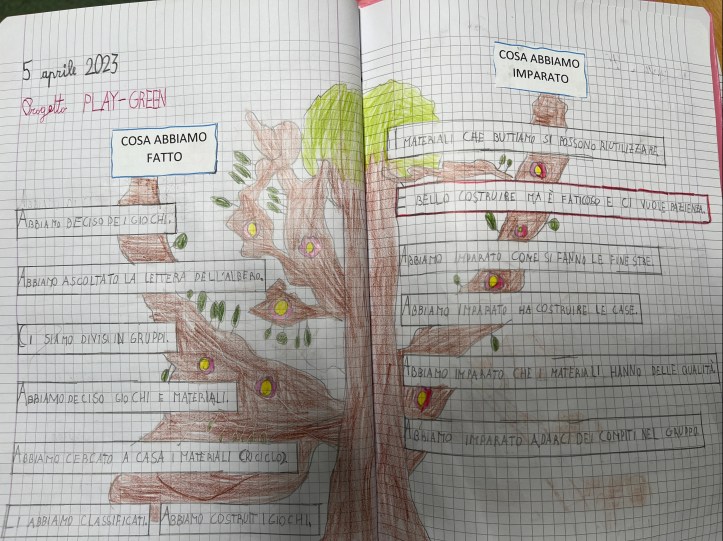 5 aprile 2023
Progetto PLAY-GREEN
COSA ABBIAMO
FATTO
ABBIAMO DECISO DEI GIOCHI.
ABBIAMO ASCOLTATO LA LETTERA DELL'ALBERO.
CI SIAMO DIVISI IN GRUPPI.
ABBIAMO DECISO GIOCHI E MATERIALI.
ABBIAMO CERCATO A CASA I MATERIALI (RICICLO)
LI ABBIAMO CLASSIFICATI. ABBIAMO COSTRUITI I GIOCHI.
COSA ABBIAMO
IMPARATO
I MATERIALI CHE BUTTIAMO SI POSSONO RIUTILIZZARE.
È BELLO COSTRUIRE MA È FATICOSO E CI VUOLE PAZIENZA.
ABBIAMO IMPARATO COME SI FANNO LE FINESTRE.
ABBIAMO IMPARATO HA COSTRUIRE LE CASE.
ABBIAMO IMPARATO CHE I MATERIALI HANNO DELLE QUALITÀ
ABBIAMO IMPARATO A DARCI DEI COMPITI NEL GRUPPO.